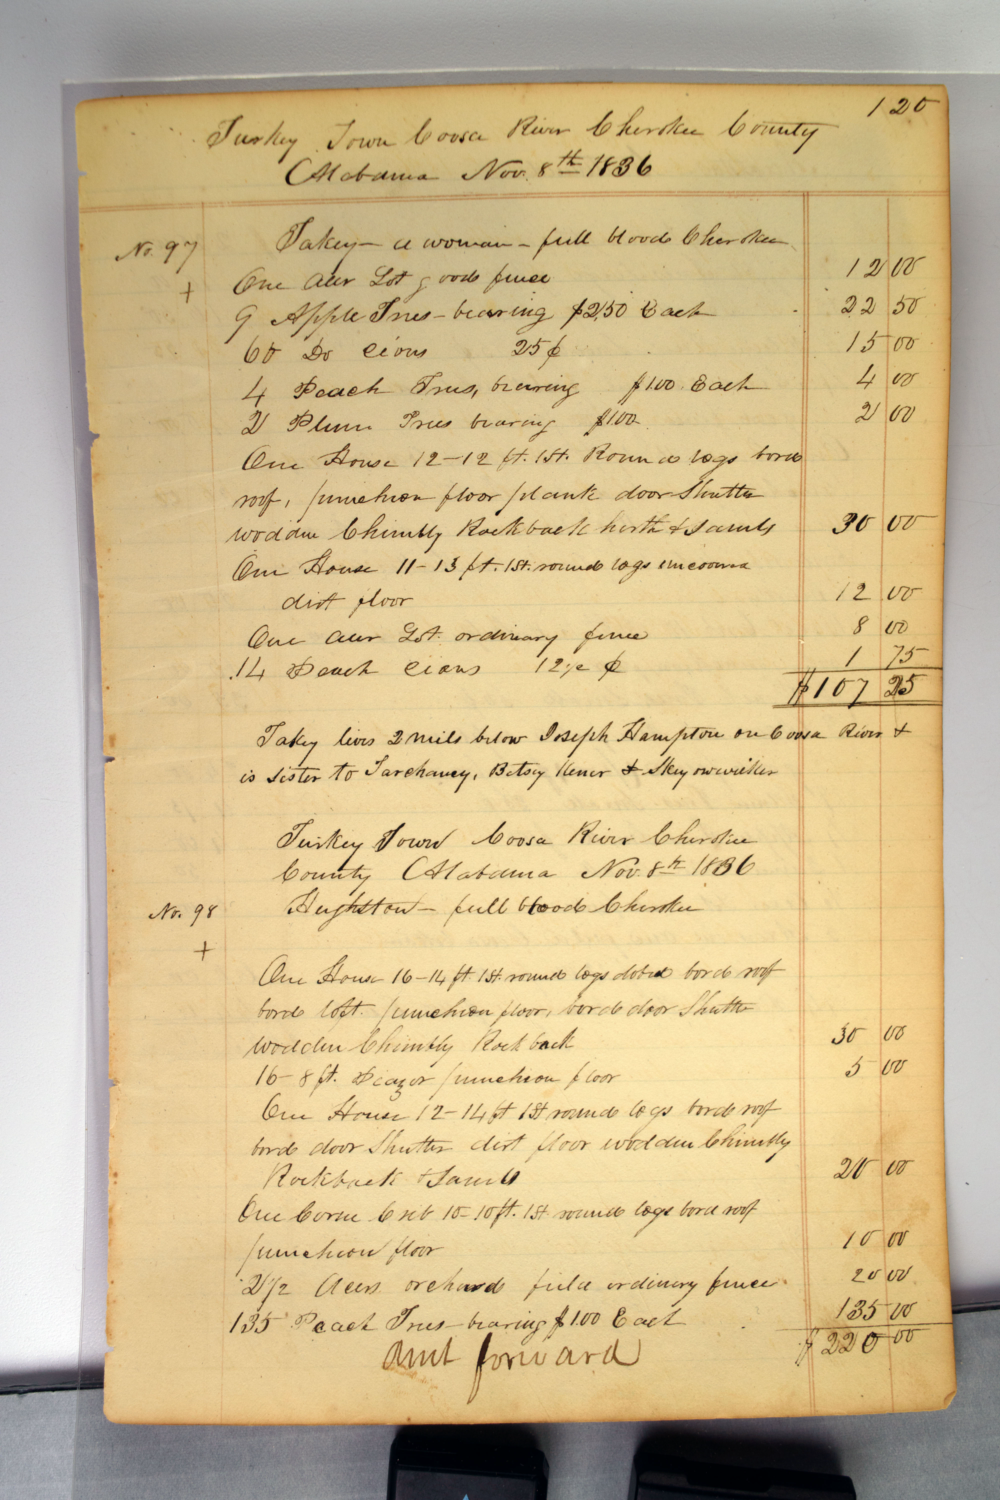 120
Turkey Town Coosa River Cherokee County
Alabama Nov. 8th 1836
No. 97 Takey – a woman – full blood Cherokee
+ One Acer Lot good fence 12 00
9 Apple Trees – bearing $2.50 Each 22 50
60 Do Cions 25¢ 15 00
4 Peach Trees, bearing $1.00 Each 4 00
2 Plum Trees bearing $1.00 2 00
One House 12–12 ft. 1st. Round logs bord
roof, puncheon floor plank door Shutter
wodden Chimbly Rockback herth & Jambs 30 00
One House 11–13 ft. 1st. round logs
dirt floor 12 00
One Acer Lot ordinary fence 8 00
14 Peach Cions 12½ ¢ 1 75
$107 25
Takey lives 2 mils below Joseph Hampton on Coosa River &
is sister to Tarchancy, Betsy Kener &
Turkey Town Coosa River Cherokee
County Alabama Nov. 8th 1836
No. 98 Hughston – full blood Cherokee
+
One House 16–14 ft 1st. round logs dobed bord roof
bord loft puncheon floor, bord door Shutter
wodden Chimbly Rockback 30 00
16–8 ft. Peazor puncheon floor 5 00
One House 12–14 ft 1st round logs bord roof
bord door Shutter dirt floor wodden Chimbly
Rockback & Jambs 20 00
One Corne Crib 10–10 ft. 1st round logs bord roof
puncheon floor 10 00
2½ Acers orchard field ordinary fence 20 00
135 Peach Trees bearing $1.00 Each 135 00
Amt forward $220 00